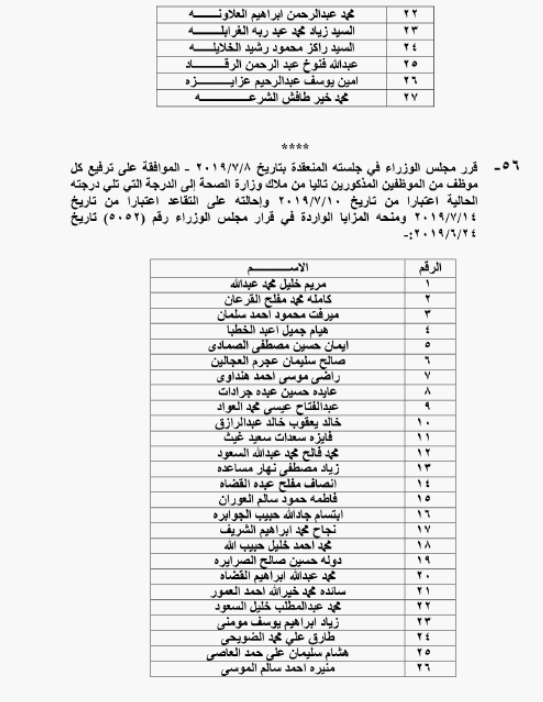 ٢٢ محمد عبدالرحمن ابراهيم العلاونـــــه
٢٣ السيد زياد محمد عبد ربه الغرابلـــــه
٢٤ السيد راكز محمود رشيد الخلايلـــــه
٢٥ عبدالله فنوخ عبد الرحمن الرقـــــاد
٢٦ امين يوسف عبدالرحيم عزايـــــزه
٢٧ محمد خير طافش الشرعـــــــــه
****
٥٦- قرر مجلس الوزراء في جلسته المنعقدة بتاريخ ٢٠١٩/٧/٨ - الموافقة على ترفيع كل
موظف من الموظفين المذكورين تاليا من ملاك وزارة الصحة إلى الدرجة التي تلي درجته
الحالية اعتبارا من تاريخ ٢٠١٩/٧/١٠ وإحالته على التقاعد اعتبارا من تاريخ
٢٠١٩/٧/١٤ ومنحه المزايا الواردة في قرار مجلس الوزراء رقم (٥٠٥٢) تاريخ
٢٠١٩/٦/٢٤:-
الرقم الاســـــــم
١ مريم خليل محمد عبدالله
٢ كامله محمد مفلح القرعان
٣ ميرفت محمود احمد سلمان
٤ هيام جميل اعبد الخطبا
٥ ايمان حسين مصطفى الصمادى
٦ صالح سليمان عجرم العجالين
٧ راضى موسى احمد هنداوى
٨ عايده حسين عبده جرادات
٩ عبدالفتاح عيسى محمد العواد
١٠ خالد يعقوب خالد عبدالرازق
١١ فايزه سعدات سعيد غيث
١٢ محمد فالح محمد عبدالله السعود
١٣ زياد مصطفى نهار مساعده
١٤ انصاف مفلح عبده القضاه
١٥ فاطمه حمود سالم العوران
١٦ ابتسام جادالله حبيب الجوابره
١٧ نجاح محمد ابراهيم الشريف
١٨ محمد احمد خليل حبيب الله
١٩ دوله حسين صالح الصرايره
٢٠ محمد عبدالله ابراهيم القضاه
٢١ سائده محمد خيرالله احمد العمور
٢٢ محمد عبدالمطلب خليل السعود
٢٣ زياد ابراهيم يوسف مومنى
٢٤ طارق علي محمد الضويحى
٢٥ هشام سليمان على حمد العاصى
٢٦ منيره احمد سالم الموسى